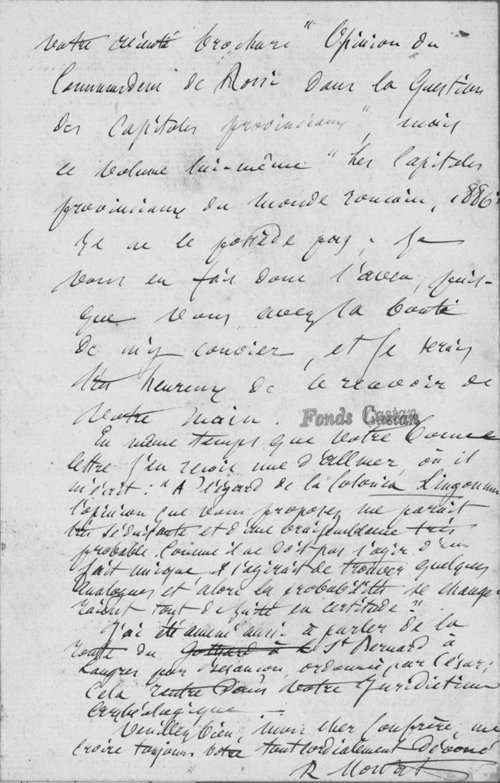 votre récente brochure "Opinion du
Commandeur de Rossi dans la Question
des Capitoles provinciaux", mais
ce volume lui-même "Les Capitoles
provinciaux du monde romain, 1886"
Je ne le possède pas; Je
vous en fais donc l'aveu, puis-
que vous avez la bonté
de m'y convier, et Je serais
très heureux de le recevoir de
votre main.
Fonds Castan
En même temps que votre bonne
lettre j'en reçois une d'Allmer, où il
m'écrit: "A l'égard de la Colonia Lingonum
l'opinion que vous proposez me paraît
très séduisante et d'une vraisemblance très
probable. Comme il ne doit pas s'agir d'un
fait unique il s'agirait de trouver quelques
analogues et alors la probabilité se change-
raient tout de suite en certitude".
J'ai été amené aussi à parler de la
route du Gothard à le St Bernard à
Langres par Besançon, ordonnée par César;
Cela rentre dans votre Juridiction
archéologique —
Veuillez bien, mon cher Confrère, me
croire toujours votre tout cordialement dévoué
R Mowat